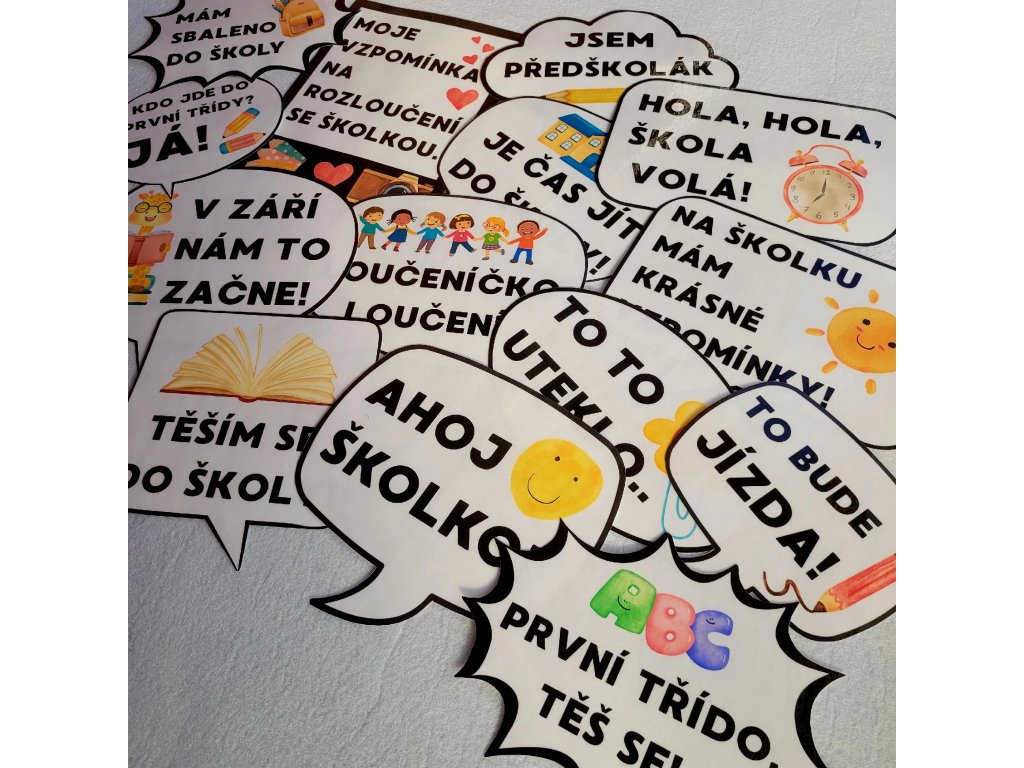 MÁM
SBALENO
DO ŠKOLY
MOJE
VZPOMÍNKA
NA
ROZLOUČENÍ
SE ŠKOLKOU.
JSEM
PŘEDŠKOLÁK
KDO JDE DO
PRVNÍ TŘÍDY?
JÁ!
JE ČAS JÍT
DO
HOLA, HOLA,
ŠKOLA
VOLÁ!
V ZÁŘÍ
NÁM TO
ZAČNE!
OUČENÍČKO
LOUČENÍ
NA ŠKOLKU
MÁM
KRÁSNÉ
TO TO
UTEKLO..
TĚŠÍM SE
DO ŠKOL
AHOJ
ŠKOLKO
TO BUDE
JÍZDA!
ABC
PRVNÍ TŘÍDO,
TĚŠ SE!